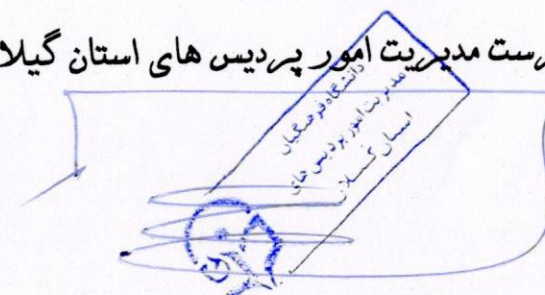 رست مدیریت امور پردیس های استان گیلا
دانشگاه فرهنگیان
مدیریت امور پردیس های
استان گیلان